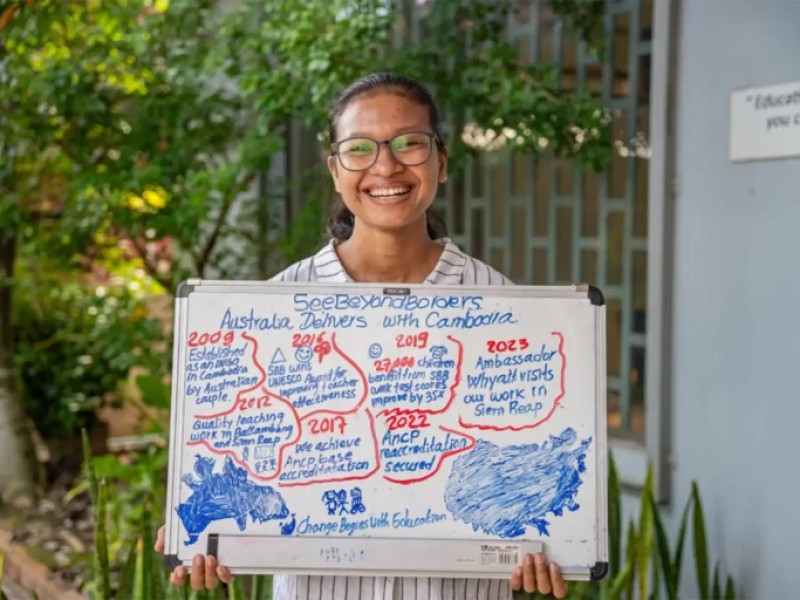 SeeBeyondBorders
Australia Delivers with Cambodia
2009
Established
as an INGO
in Cambodia
by Australian
couple.
2012
Quality teaching
work in Battambang
and Siem Reap
2016
SBB wins
UNESCO Award for
improving teacher
effectiveness
2017
We achieve
Ancp base
accreditatation
2019
children
benefit from SBB
work test scores
improve by 35%
2022
Ancp
reaccreditation
secured
2023
Ambassador
Whyatt visits
our work in
Siem Reap
Change Begins with Education
"Educati
you c